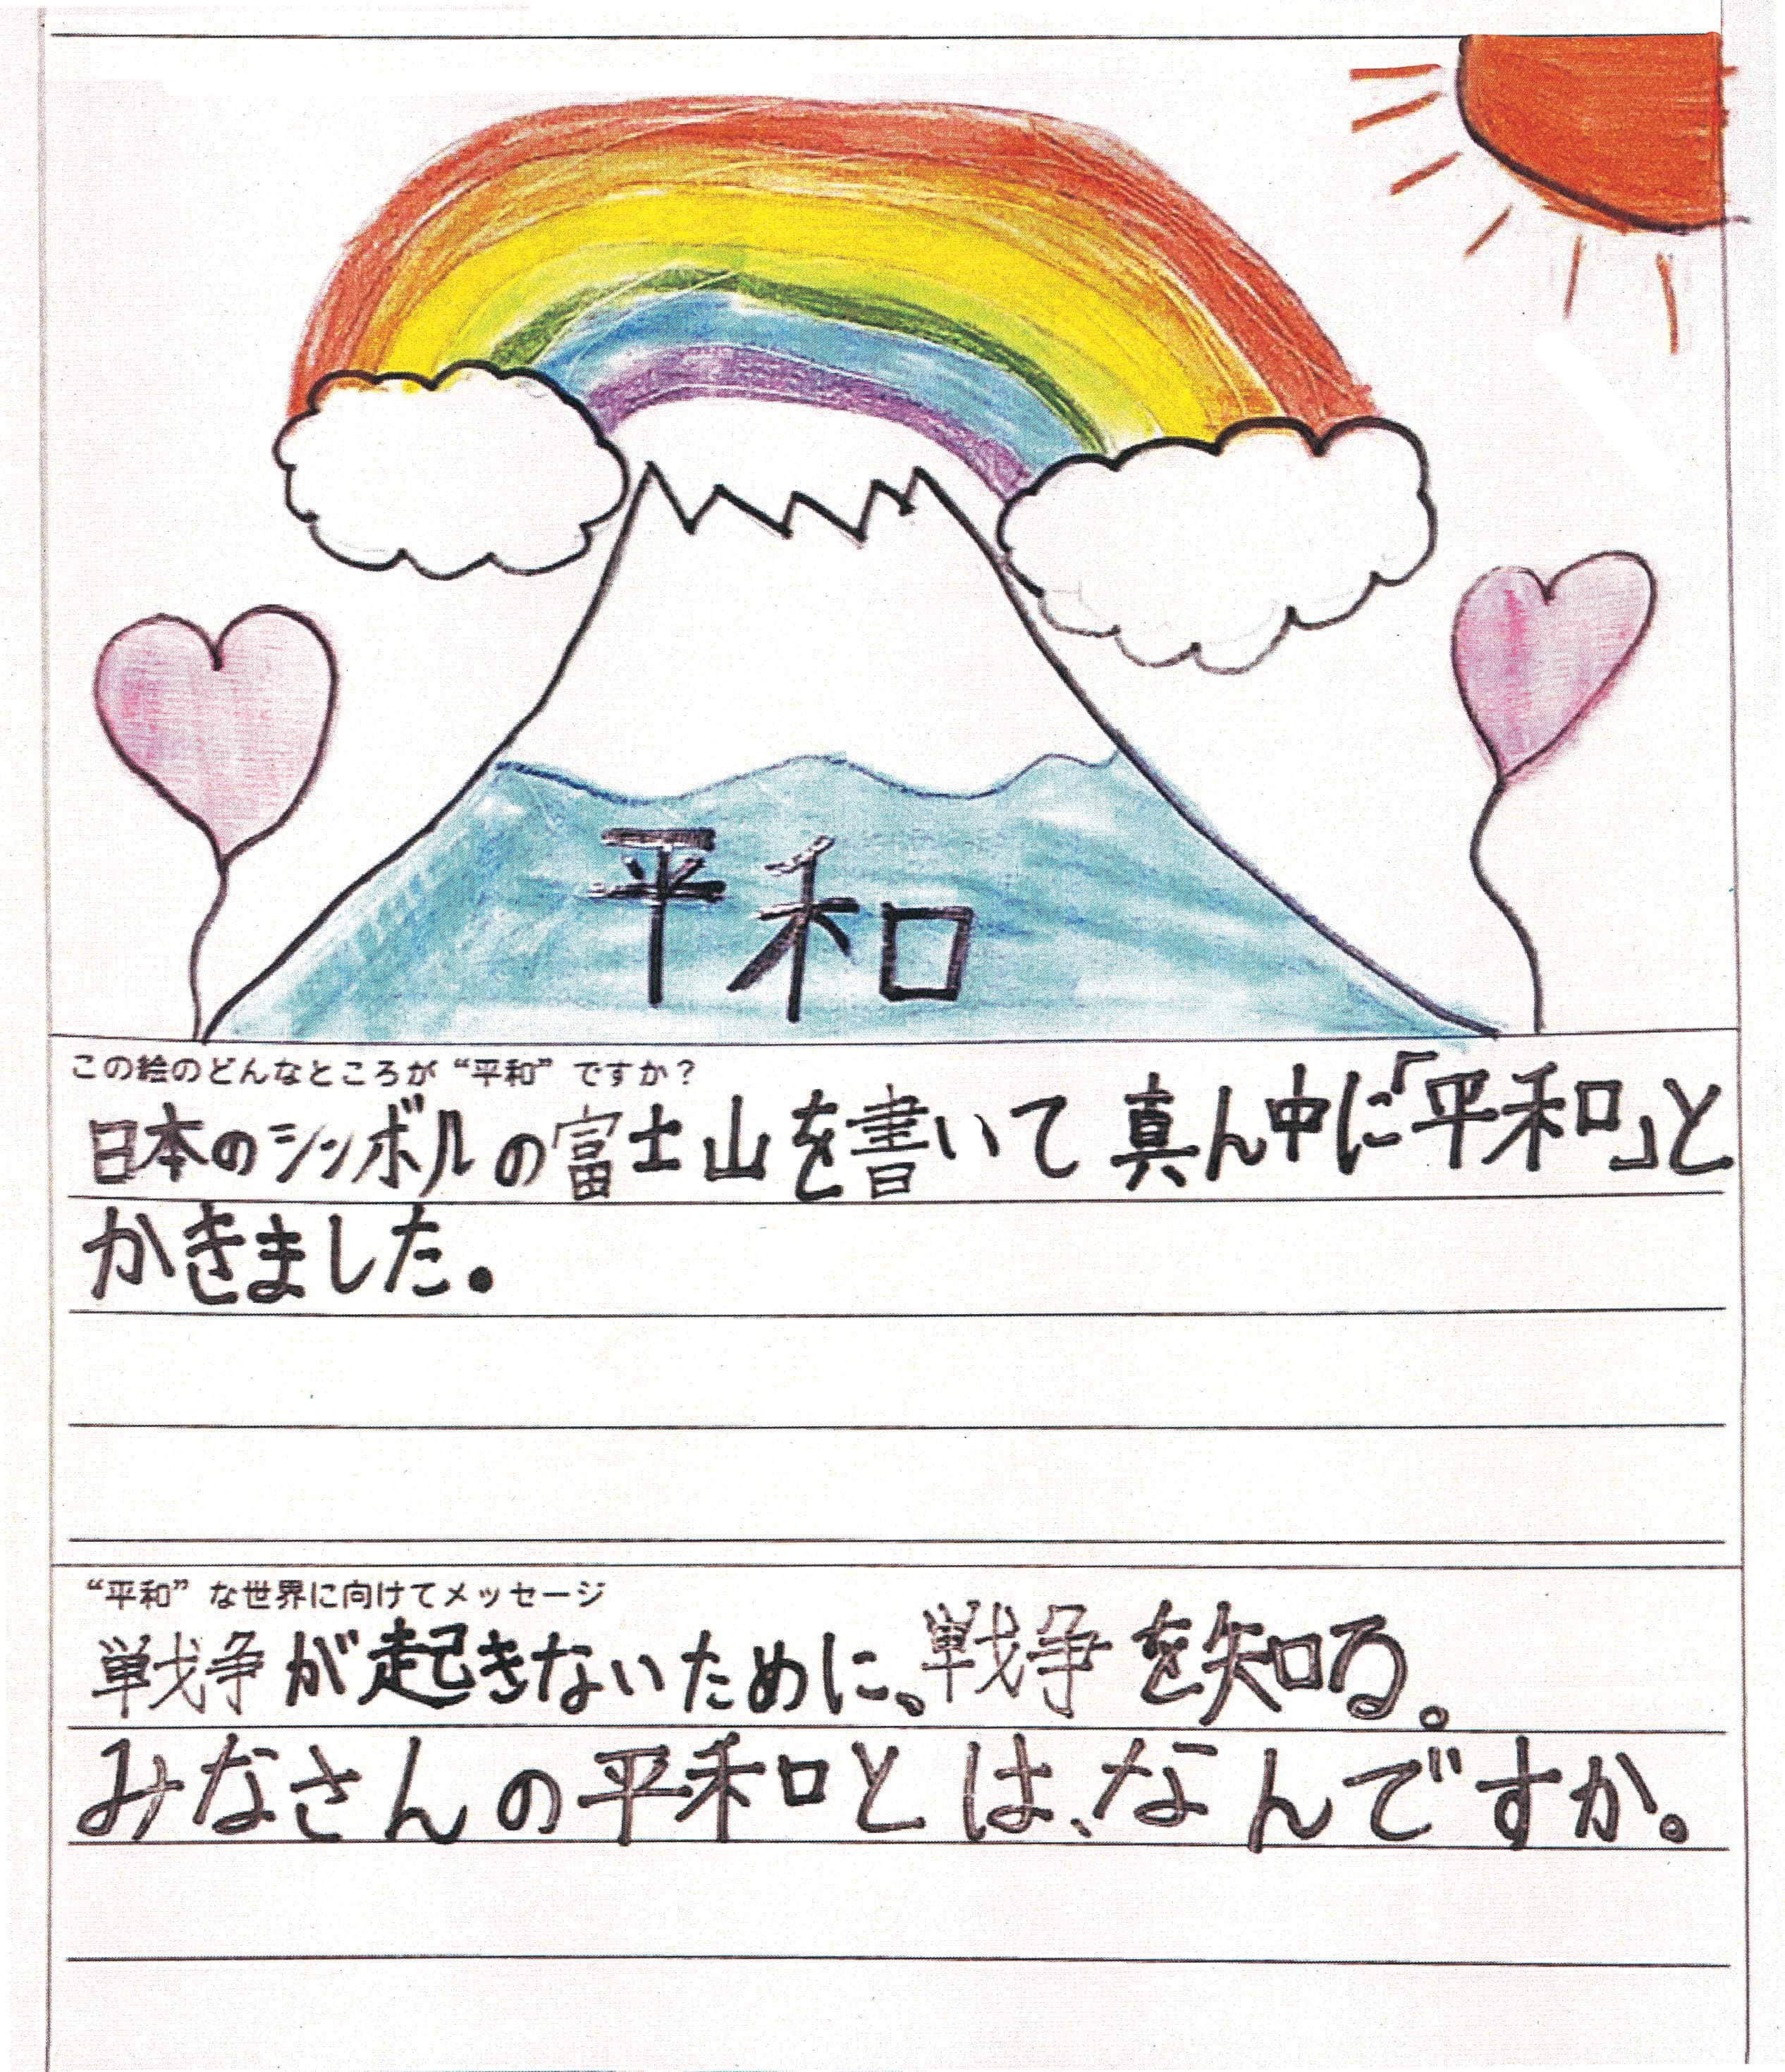 平和
この絵のどんなところが“平和”ですか？
日本のシンボルの富士山を書いて真ん中に「平和」と
かきました。
“平和”な世界に向けてメッセージ
戦争が起きないために、戦争を知る。
みなさんの平和とは、なんですか。